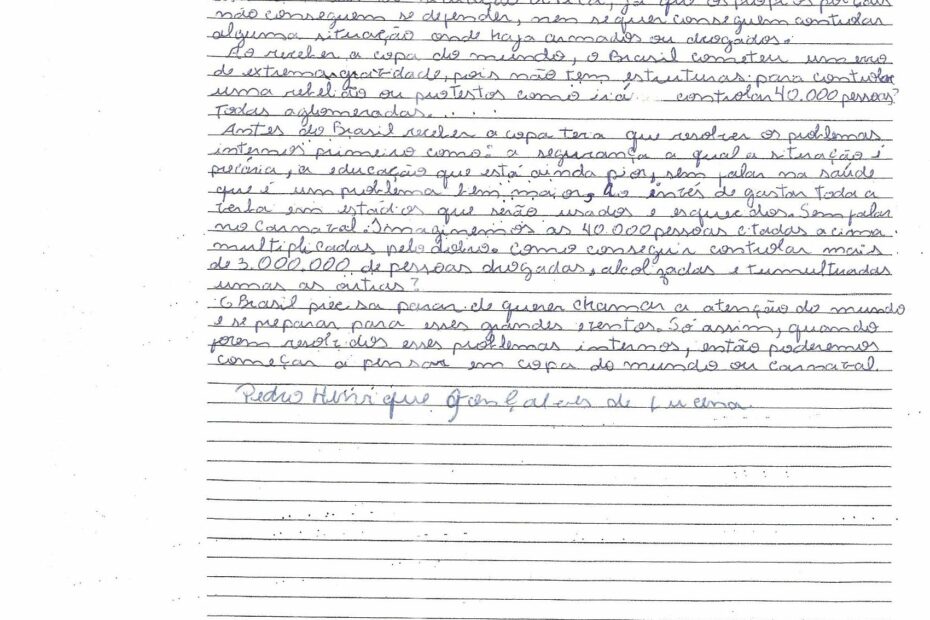 já que os próprios policiais
não conseguem se defender, nem sequer conseguem controlar
alguma situação onde haja armados ou drogados.
Ao receber a copa do mundo, o Brasil cometeu um erro
de extrema gravidade, pois não tem estruturas para controlar
uma rebelião ou protestos como irá controlar 40.000 pessoas?
Todas aglomeradas.....
Antes do Brasil receber a copa tera que resolver os problemas
internos primeiro como: a segurança a qual a situação é
precária, a educação que está ainda pior, sem falar na saúde
que é um problema bem maior, Ao invés de gastar toda a
verba em estádios que serão usados e esquecidos. Sem falar
no carnaval. Imaginemos as 40.000 pessoas citadas acima
multiplicadas pelo dobro. Como conseguir controlar mais
de 3.000.000 de pessoas drogadas, alcolizadas e tumultuadas
umas as outras?
O Brasil precisa parar de querer chamar a atenção do mundo
e se preparar para esses grandes eventos. Só assim, quando
forem resolvidos esses problemas internos, então poderemos
começar a pensar em copa do mundo ou carnaval.
Pedro Henrique Gonçalves de Lucena